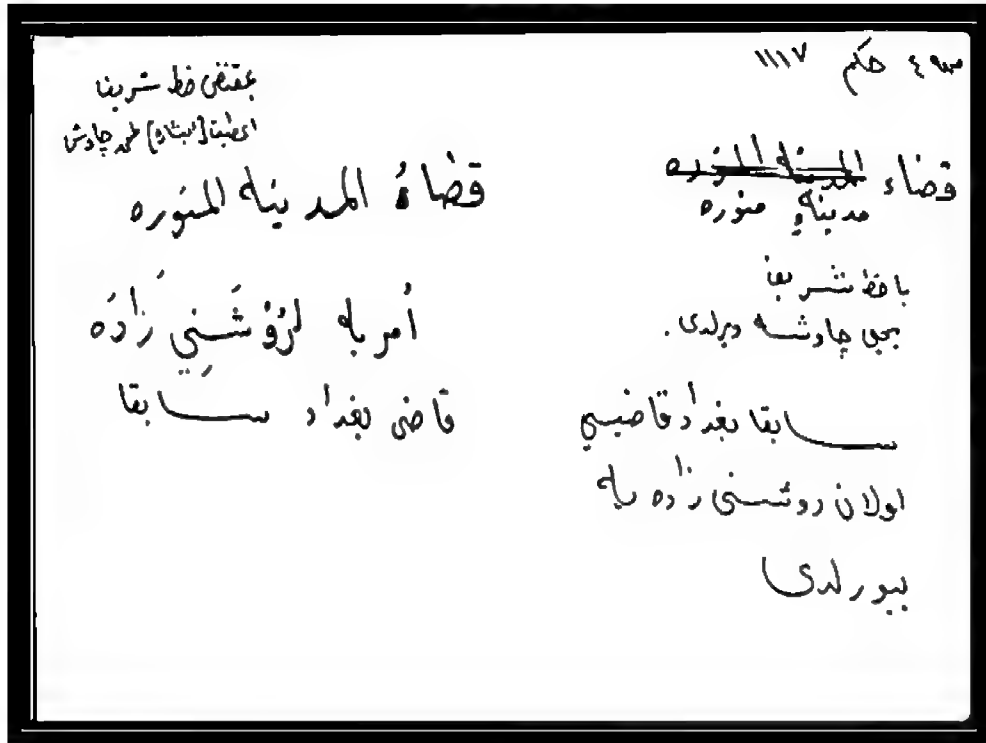 ص ٤ حكم ١١١٧
قضاء المدينه المنوره
مدينهٔ منوره
با خط شريف
يحيى چاوشه ويرلدى.
سابقا بغداد قاضيسي
اولان روشنى زاده يه
بيورلدى
بمقتضى خط شريف
چاوش
قضاءُ المدينه المنوره
أمر به لرُوْشَنِي زَادَه
قاضى بغداد سابقا